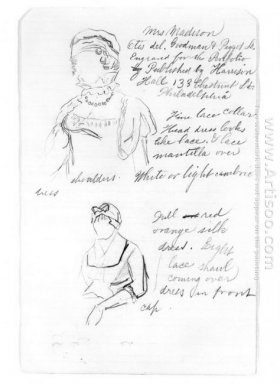 Mrs. Madison
Otis del. Goodman & Piggot Sc.
Engraved for the Portfolio
by Published by Harrison
Hall 133 Chestnut St.
Philadelphia
Fine lace collar
Head dress looks
like lace. & lace
mantilla over
shoulders. White or light cambric
dress
Full red
orange silk
dress. Light
lace shawl
coming over
dress in front
cap.
www.Artisoo.com